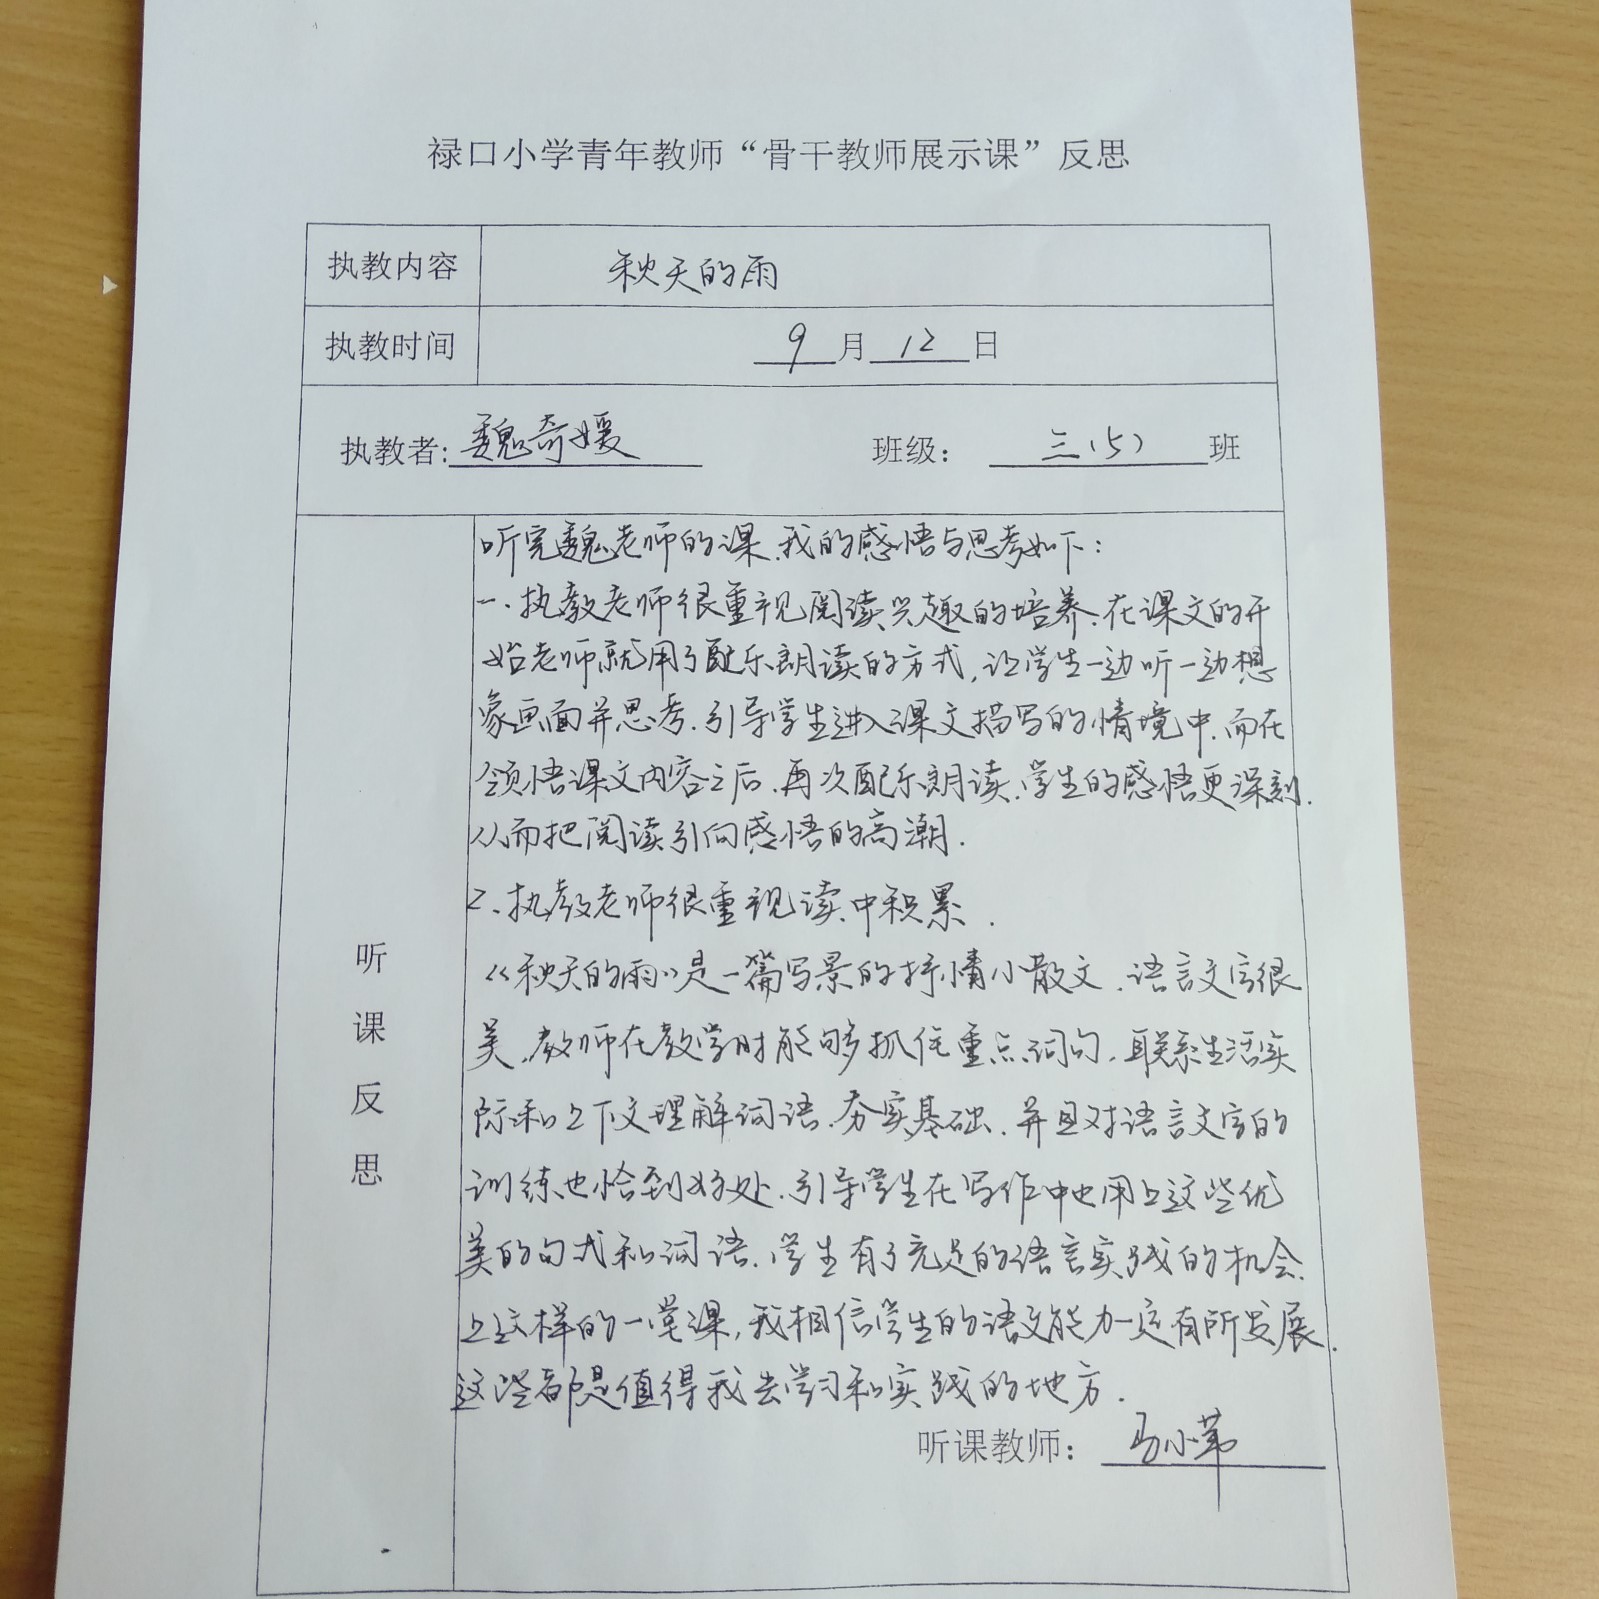 禄口小学青年教师“骨干教师展示课”反思
执教内容 秋天的雨
执教时间 9月12日
执教者:魏奇媛 班级：三(5)班
听完魏老师的课,我的感悟与思考如下：
一、执教老师很重视阅读兴趣的培养.在课文的开
始老师就用了配乐朗读的方式,让学生一边听一边想
象画面并思考.引导学生进入课文描写的情境中.而在
领悟课文内容之后.再次配乐朗读.学生的感悟更深刻.
从而把阅读引向感悟的高潮.
2、执教老师很重视读中积累.
《秋天的雨》是一篇写景的抒情小散文.语言文字很
美.教师在教学时能够抓住重点词句.联系生活实
际和上下文理解词语.夯实基础.并且对语言文字的
训练也恰到好处.引导学生在写作中也用上这些优
美的句式和词语.学生有了充足的语言实践的机会.
上这样的一堂课,我相信学生的语文能力一定有所发展.
这些都是值得我去学习和实践的地方.
听课反思
听课教师：马小